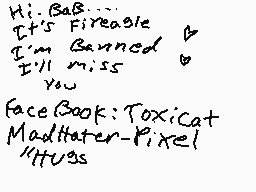 Hi. BaB.....
It's Fireagle
I'm Banned
I'll miss
You
FaceBook: Toxicat
MadHater-Pixel
"Hugs